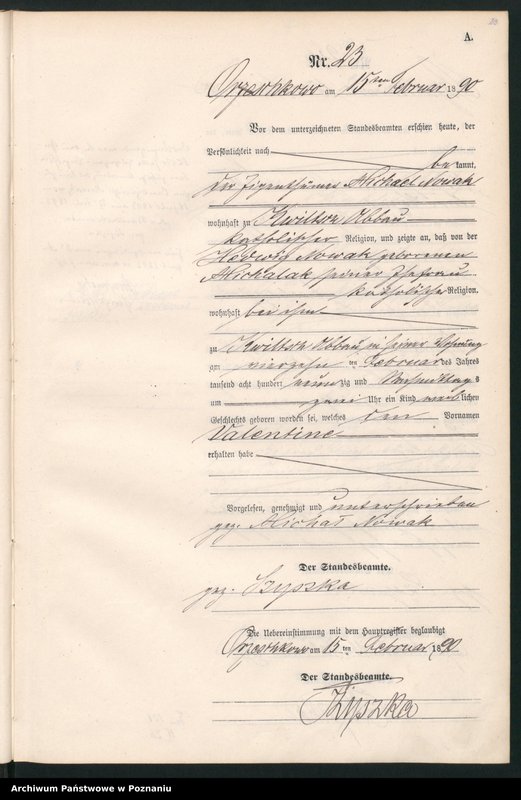 23
A.
Nr. 23
Orzeschkowo am 15ten Februar 1890
Vor dem unterzeichneten Standesbeamten erschien heute, der
Persönlichkeit nach
be kannt,
der Eigenthümer Michael Nowak
wohnhaft zu Kwiltsch Abbau
katholischer Religion, und zeigte an, daß von der
Hedwig Nowak geborenen
Michalak seiner Ehefrau
katholische Religion,
wohnhaft bei ihm
zu Kwiltsch Abbau in seiner Wohnung
am vierzehn ten Februar des Jahres
tausend acht hundert neun zig und Nachmittag s
um zwei Uhr ein Kind weib lichen
Geschlechts geboren worden sei, welches den Vornamen
Valentine
erhalten habe
Vorgelesen, genehmigt und unterschrieben
gez. Michał Nowak
Der Standesbeamte.
gez. Szyszka
Die Uebereinstimmung mit dem Hauptregister beglaubigt
Orzeschkowo am 15 ten Februar 1890
Der Standesbeamte.
Szyszka
Archiwum Państwowe w Poznaniu